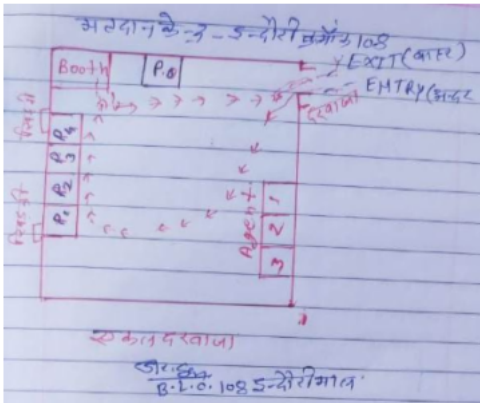 मतदान केन्द्र - इन्दौरी क्रमांक 108
Booth
P.O
EXIT (बाहर)
ENTRY (अन्दर
दरवाजा
खिडकी
P4
P3
P2
P1
खिडकी
Agent
1
2
3
एकल दरवाजा
B.L.O. 108 इन्दौरीमाल